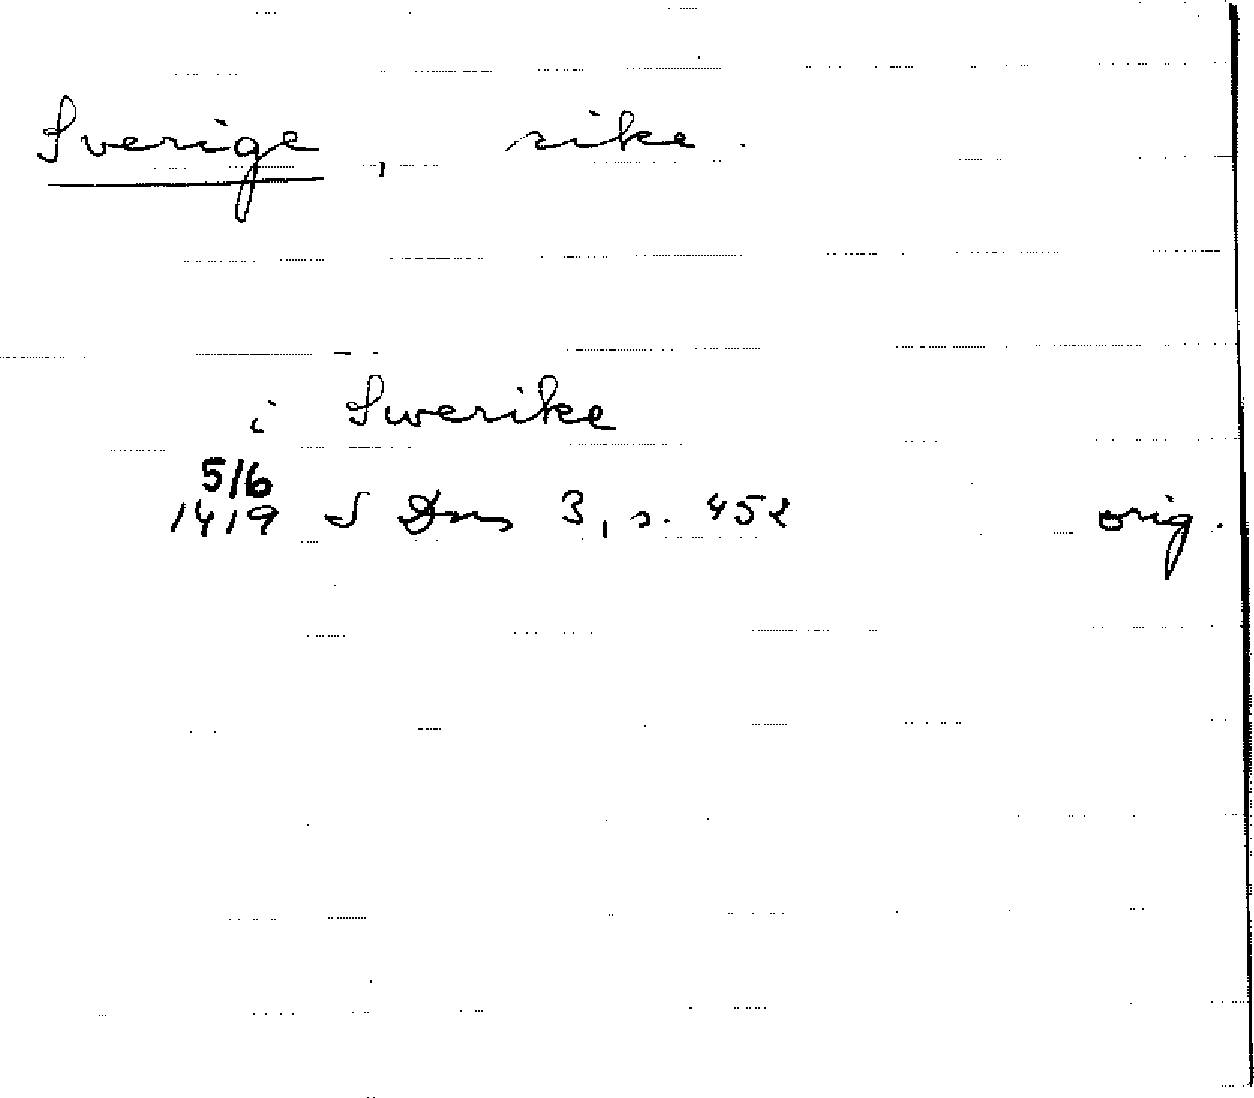 Sverige, rike.
i Swerike
5/6
1419 S Dns 3, s. 452 orig.